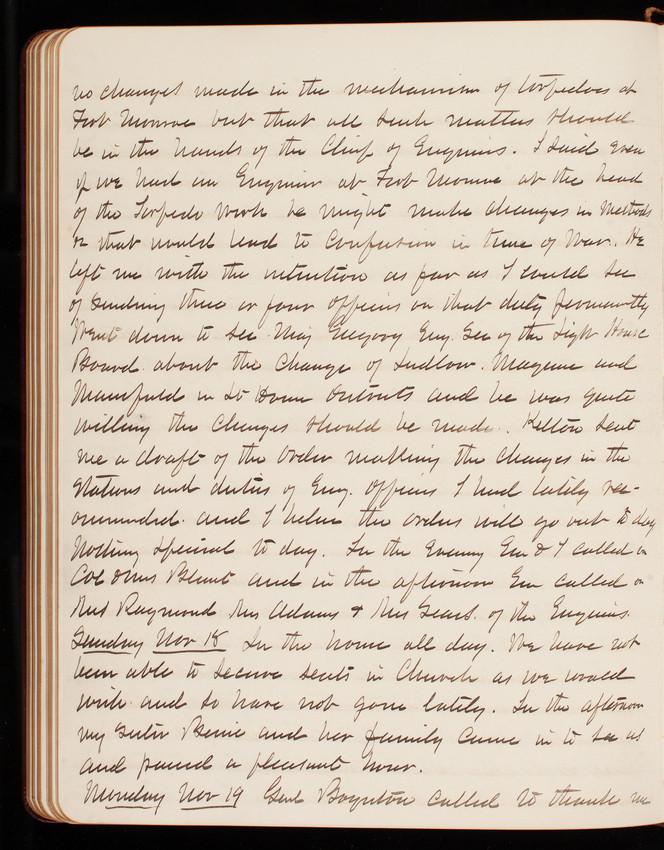 no changes made in the mechanism of torpedoes at
Fort Monroe but that all such matters should
be in the hands of the Chief of Engineers. I said even
if we had an Engineer at Fort Monroe at the head
of the Torpedo work he might make changes in methods
or that would lead to confusion in time of War. He
left me with the intention as far as I could see
of sending three or four officers on that duty permanently
Went down to see Maj Gregory Eng. Sec of the Light House
Board about the change of Ludlow. Maguire and
Mansfield in Lt House Districts and he was quite
willing the changes should be made. Kelton sent
me a draft of the order making the changes in the
Stations and duties of Eng. officers I had lately rec-
ommended and I believe the orders will go out to day
Nothing special to day. In the Evening Em & I called on
Col & Mrs Blunt and in the afternoon Em called on
Mrs Raymond Mrs Adams & Mrs Sears. of the Engineers.
Sunday Nov 18 In the house all day. We have not
been able to secure seats in Church as we would
wish and so have not gone lately. In the afternoon
my sister and her family came in to see us
and passed a pleasant hour.
Monday Nov 19 Genl Boynton called to thank me